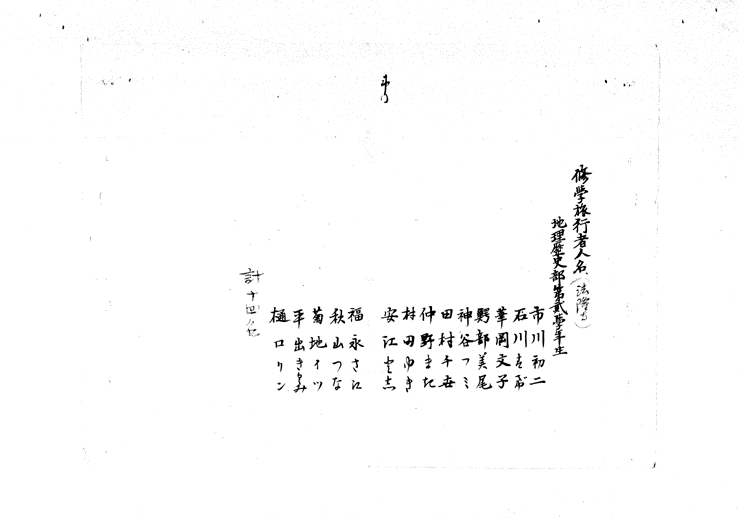 修學旅行者人名(法隆寺)
地理歴史部第貳學年生
市川初二
石川
華岡文子
服部美尾
神谷フミ
田村千世
仲野まさ
村田ゆき
安江
福永さに
秋山つな
菊地イツ
平出きみ
樋口リン
計十四名